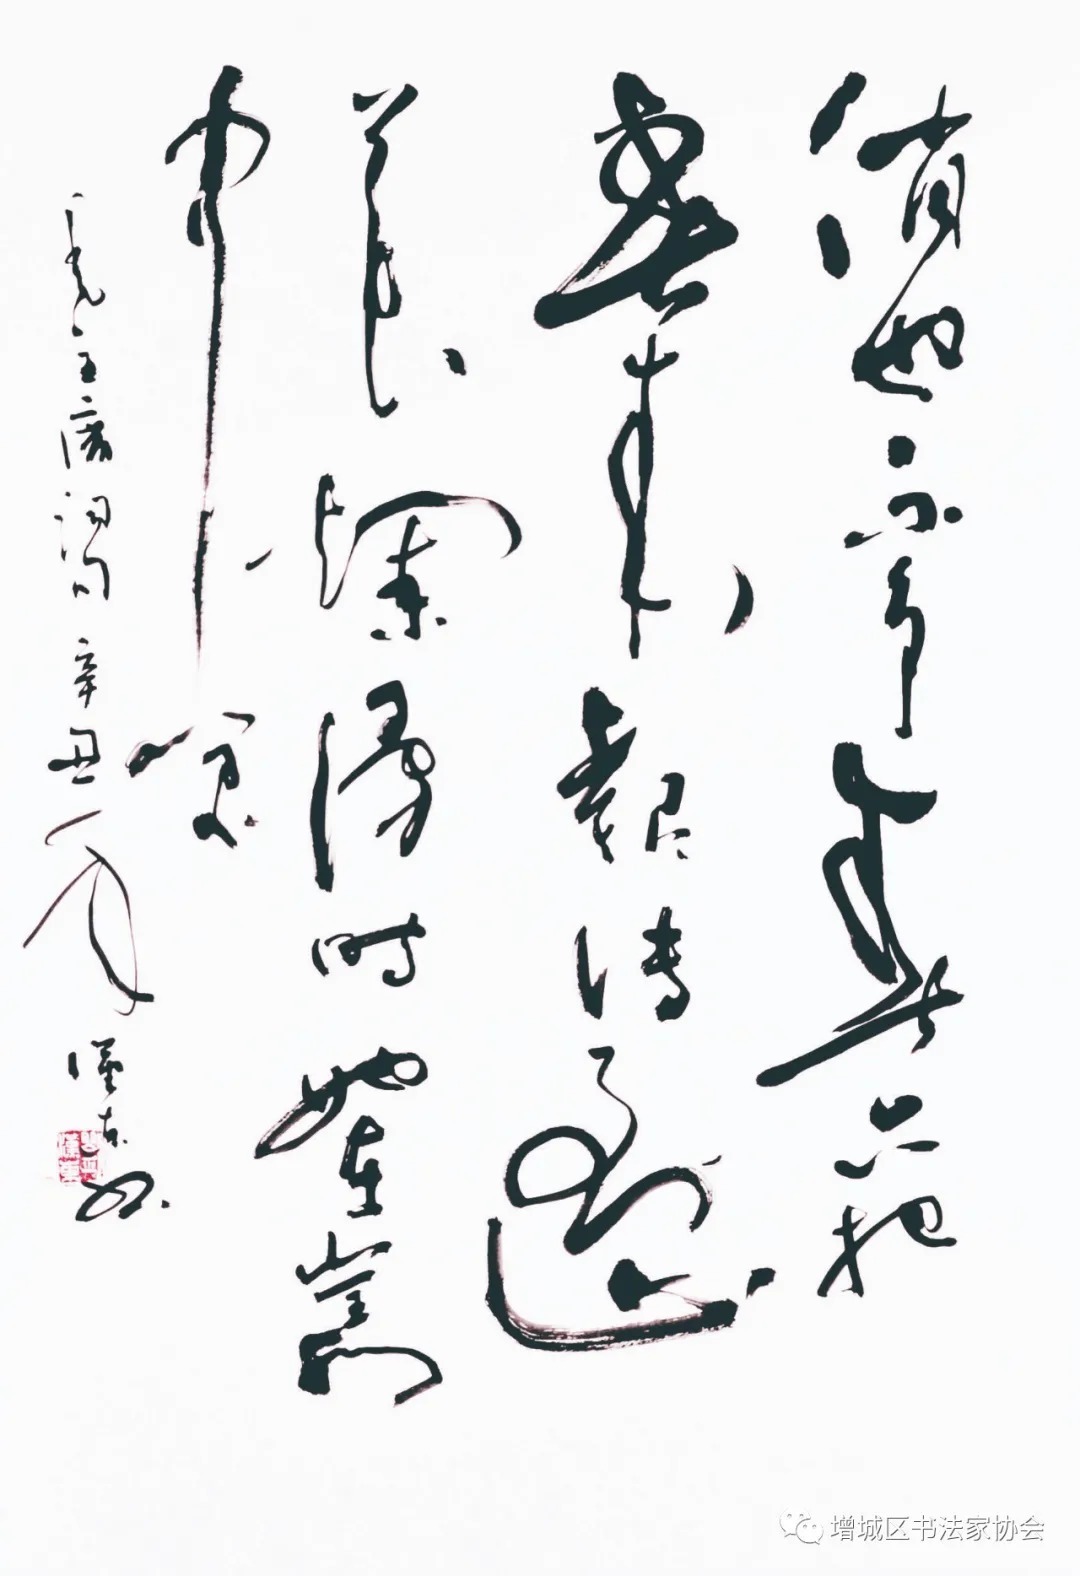 俏也不争春只把
春来報待到山
花爛漫時她在叢
中笑
毛主席詞句 辛丑年 漢东书
增城区书法家协会